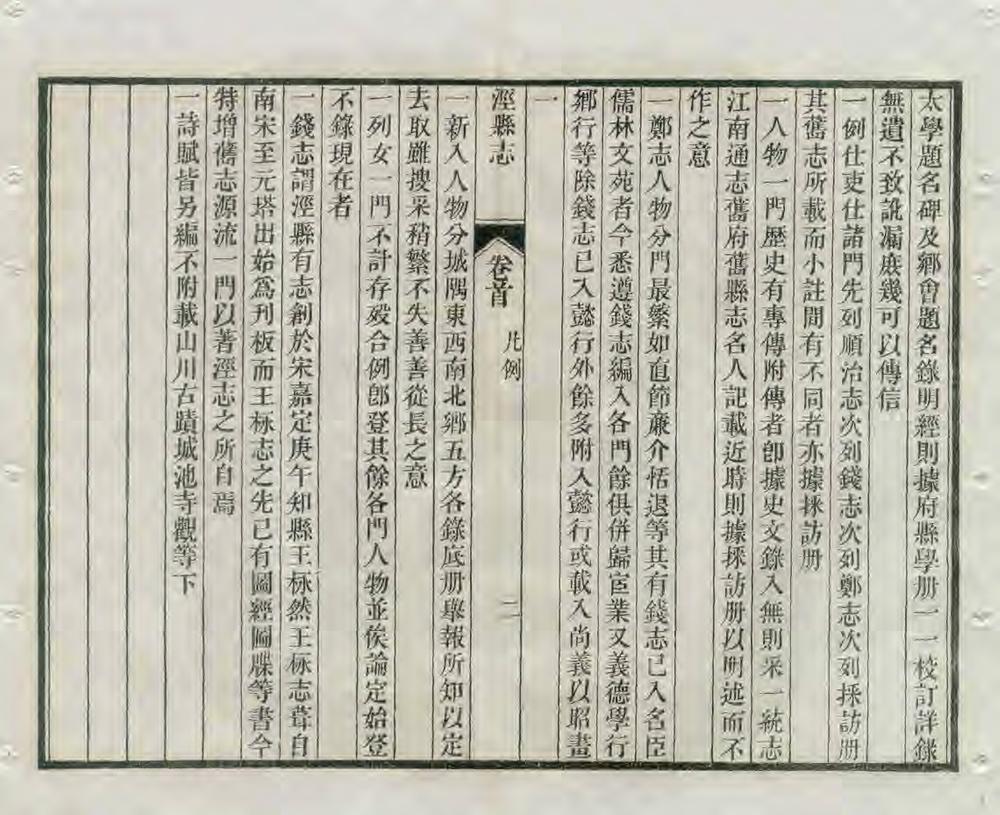 太學題名碑及鄉會題名錄明經則據府縣學册一一校訂詳錄
無遺不致訛漏庶幾可以傳信
一例仕吏仕諸門先列順治志次列錢志次列鄭志次列採訪册
其舊志所載而小註間有不同者亦據採訪册
一人物一門歷史有專傳附傳者卽據史文錄入無則采一統志
江南通志舊府舊縣志名人記載近時則據採訪册以明述而不
作之意
一鄭志人物分門最繁如直節廉介恬退等其有錢志已入名臣
儒林文苑者今悉遵錢志編入各門餘俱併歸宦業又義德學行
鄉行等除錢志已入懿行外餘多附入懿行或載入尚義以昭畫
一
涇縣志
卷首
凡例
二
一新入人物分城隅東西南北鄉五方各錄底册舉報所知以定
去取雖搜采稍繁不失善善從長之意
一列女一門不計存殁合例卽登其餘各門人物並俟論定始登
不錄現在者
一錢志謂涇縣有志創於宋嘉定庚午知縣王栐然王栐志葺自
南宋至元塔出始爲刊板而王栐志之先已有圖經圖牒等書今
特增舊志源流一門以著涇志之所自焉
一詩賦皆另編不附載山川古蹟城池寺觀等下